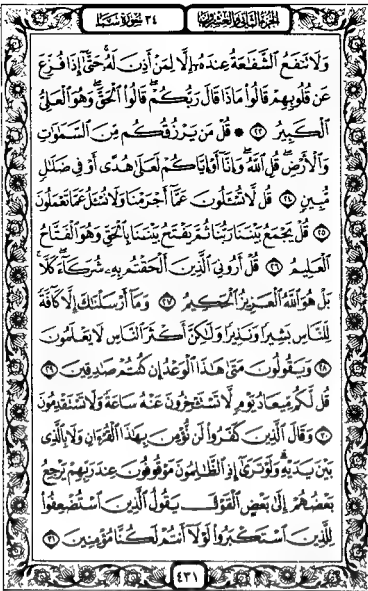 الجزء الثاني والعشرون ٣٤ سورة سبأ
وَلَا تَنفَعُ الشَّفَاعَةُ عِندَهُ إِلَّا لِمَنْ أَذِنَ لَهُ حَتَّىٰ إِذَا فُزِّعَ
عَن قُلُوبِهِمْ قَالُوا مَاذَا قَالَ رَبُّكُمْ قَالُوا الْحَقَّ وَهُوَ الْعَلِيُّ
الْكَبِيرُ ٢٣ ۞ قُلْ مَن يَرْزُقُكُم مِّنَ السَّمَاوَاتِ
وَالْأَرْضِ قُلِ اللَّهُ وَإِنَّا أَوْ إِيَّاكُمْ لَعَلَىٰ هُدًى أَوْ فِي ضَلَالٍ
مُّبِينٍ ٢٤ قُل لَّا تُسْأَلُونَ عَمَّا أَجْرَمْنَا وَلَا نُسْأَلُ عَمَّا تَعْمَلُونَ
٢٥ قُلْ يَجْمَعُ بَيْنَنَا رَبُّنَا ثُمَّ يَفْتَحُ بَيْنَنَا بِالْحَقِّ وَهُوَ الْفَتَّاحُ
الْعَلِيمُ ٢٦ قُلْ أَرُونِيَ الَّذِينَ أَلْحَقْتُم بِهِ شُرَكَاءَ كَلَّا
بَلْ هُوَ اللَّهُ الْعَزِيزُ الْحَكِيمُ ٢٧ وَمَا أَرْسَلْنَاكَ إِلَّا كَافَّةً
لِّلنَّاسِ بَشِيرًا وَنَذِيرًا وَلَٰكِنَّ أَكْثَرَ النَّاسِ لَا يَعْلَمُونَ
٢٨ وَيَقُولُونَ مَتَىٰ هَٰذَا الْوَعْدُ إِن كُنتُمْ صَادِقِينَ ٢٩
قُل لَّكُم مِّيعَادُ يَوْمٍ لَّا تَسْتَأْخِرُونَ عَنْهُ سَاعَةً وَلَا تَسْتَقْدِمُونَ
٣٠ وَقَالَ الَّذِينَ كَفَرُوا لَن نُّؤْمِنَ بِهَٰذَا الْقُرْآنِ وَلَا بِالَّذِي
بَيْنَ يَدَيْهِ وَلَوْ تَرَىٰ إِذِ الظَّالِمُونَ مَوْقُوفُونَ عِندَ رَبِّهِمْ يَرْجِعُ
بَعْضُهُمْ إِلَىٰ بَعْضٍ الْقَوْلَ يَقُولُ الَّذِينَ اسْتُضْعِفُوا
لِلَّذِينَ اسْتَكْبَرُوا لَوْلَا أَنتُمْ لَكُنَّا مُؤْمِنِينَ ٣١
٤٣١